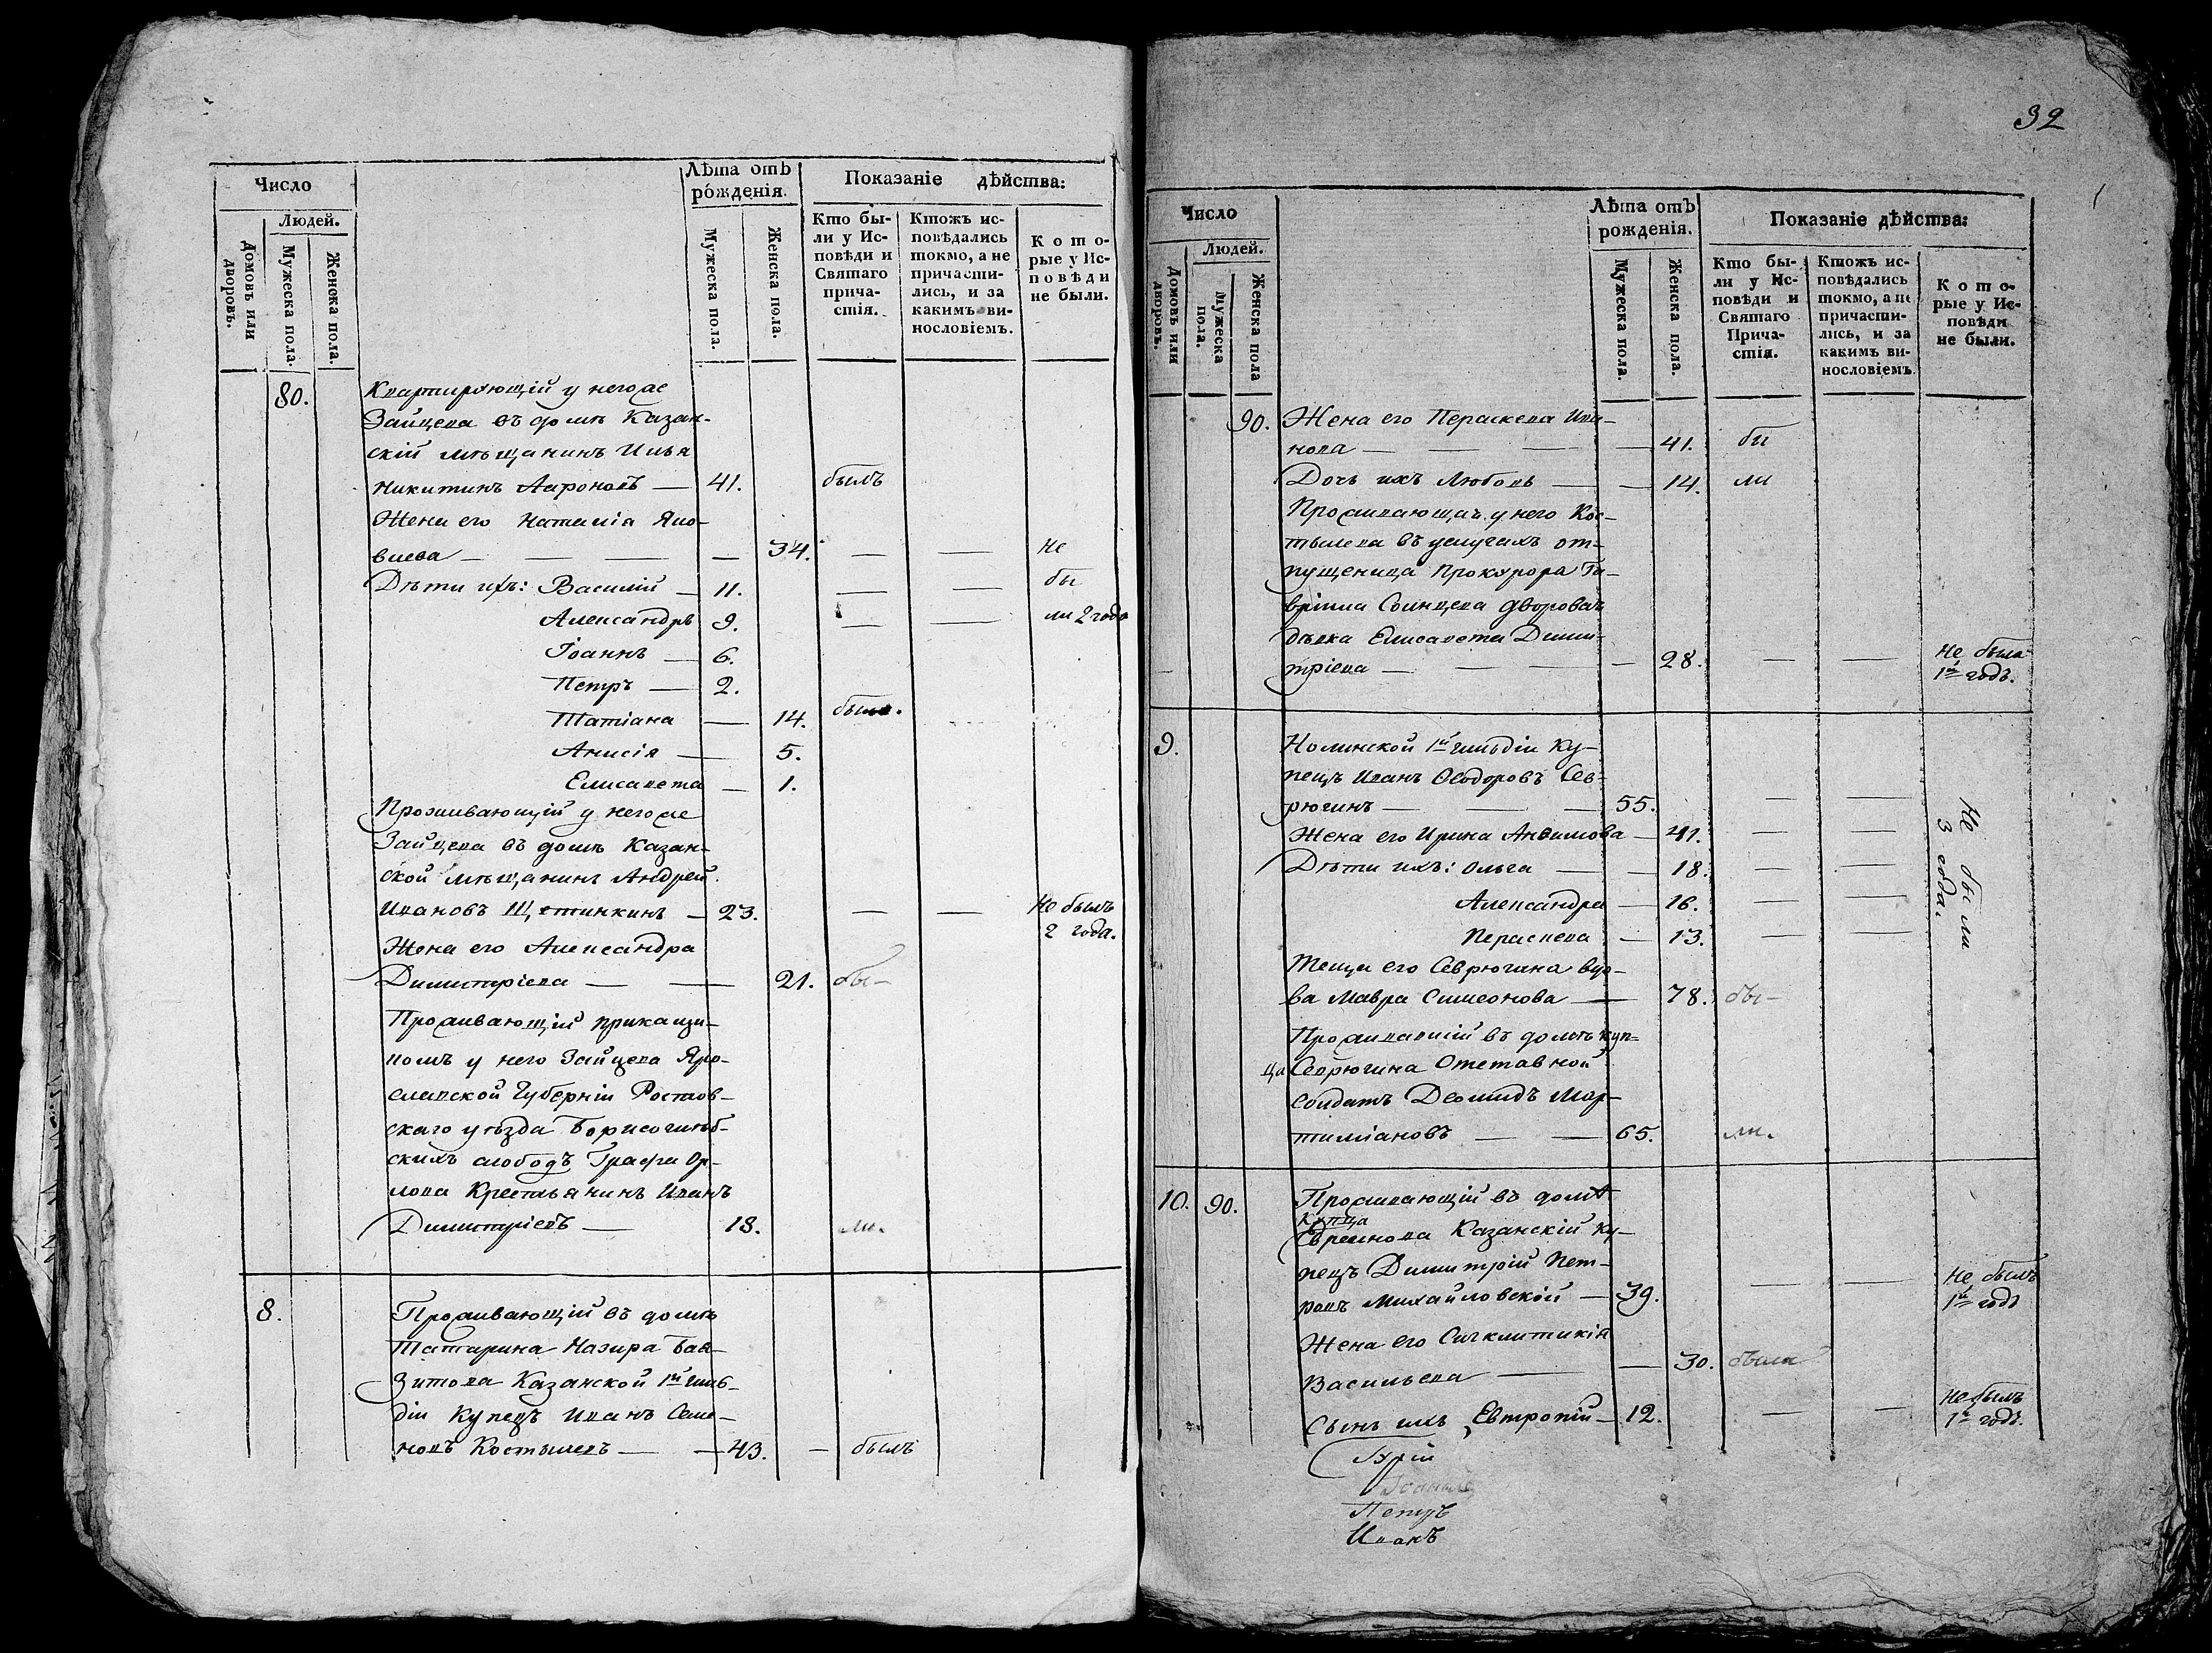 Число
Людей.
Домовъ или дворовъ.
Мужеска пола.
Женска пола.
Лѣта отъ рожденія.
Мужеска пола.
Женска пола.
Показаніе дѣйства:
Кто бы-
ли у Ис-
повѣди и
Святаго
прича-
стія.
Ктожъ ис-
повѣдались
токмо, а не
причасти-
лись, и за
какимъ ви-
нословіемъ.
Кото-
рые у Ис-
повѣди
не были.
80. Квартирующій у негоже
Зайцева въ домѣ Казан-
скій мѣщанинъ Илья
Никитинъ Аароновъ — 41. былъ
Жена его Наталія Яко-
влева — — — — 34. — — не
Дѣти ихъ: Василій — 11. — — бы
Александръ 9. — — ли 2 года
Іоаннъ — 6.
Петръ — 2.
Татіана — 14. была.
Анисія — 5.
Елисавета — 1.
Проживающій у негоже
Зайцева въ домѣ Казан-
ской мѣщанинъ Андрей
Ивановъ Щетинкинъ — 23. — — Не былъ
2 года.
Жена его Александра
Димитріева — — 21. бы-
Проживающій прикащи-
комъ у него Зайцева Яро-
славской Губерніи Ростов-
скаго уѣзда Борисоглѣб-
скихъ слободъ Графа Ор-
лова Крестьянинъ Иванъ
Димитріевъ — 18. ли.
8. Проживающій въ домѣ
Татарина Назира Бая-
зитова Казанской 1й гиль-
діи Купецъ Иванъ Семе-
новъ Костылевъ — — 43. — былъ
32
Число
Людей.
Домовъ или дворовъ.
Мужеска пола.
Женска пола
Лѣта отъ рожденія.
Мужеска пола.
Женска пола.
Показаніе дѣйства:
Кто бы-
ли у Ис-
повѣди и
Святаго
Прича-
стія.
Ктожъ ис-
повѣдались
токмо, а не
причасти-
лись, и за
какимъ ви-
нословіемъ.
Кото-
рые у Ис-
повѣди
не были.
90. Жена его Параскева Ива-
нова — — — — 41. бы
Дочь ихъ Любовь — — 14. ли
Проживающая у него Кос-
тылева въ услугахъ от-
пущеница Прокурора Га-
вріила Солнцева дворовая
дѣвка Елисавета Дими-
тріева — — — — 28. — — Не была
1й годъ.
9. Нолинской 1й гильдіи Ку-
пецъ Иванъ Ѳеодоровъ Сев-
рюгинъ — — — 55. — —
Жена его Ирина Анѳимова — 41. — —
Дѣти ихъ: Ольга — — 18. — —
Александра — 16. — —
Параскева — 13. — —
Не были
3 года.
Теща его Севрюгина вдо-
ва Мавра Симеонова — 78. бы-
Проживавшій въ домѣ куп-
ца Севрюгина Отставной
солдатъ Леонидъ Мар-
тиміановъ — — 65. ли.
10. 90. Проживающій въ домѣ
Купца
Евреинова Казанскій Ку-
пецъ Димитрій Пет-
ровъ Михайловской — 39. — — Не былъ
1й годъ
Жена его Сигклитикія
Васильева — — 30. была
Сынъ ихъ Евтропій — 12. — — не былъ
1й годъ.
Гурій
Петръ
Иванъ